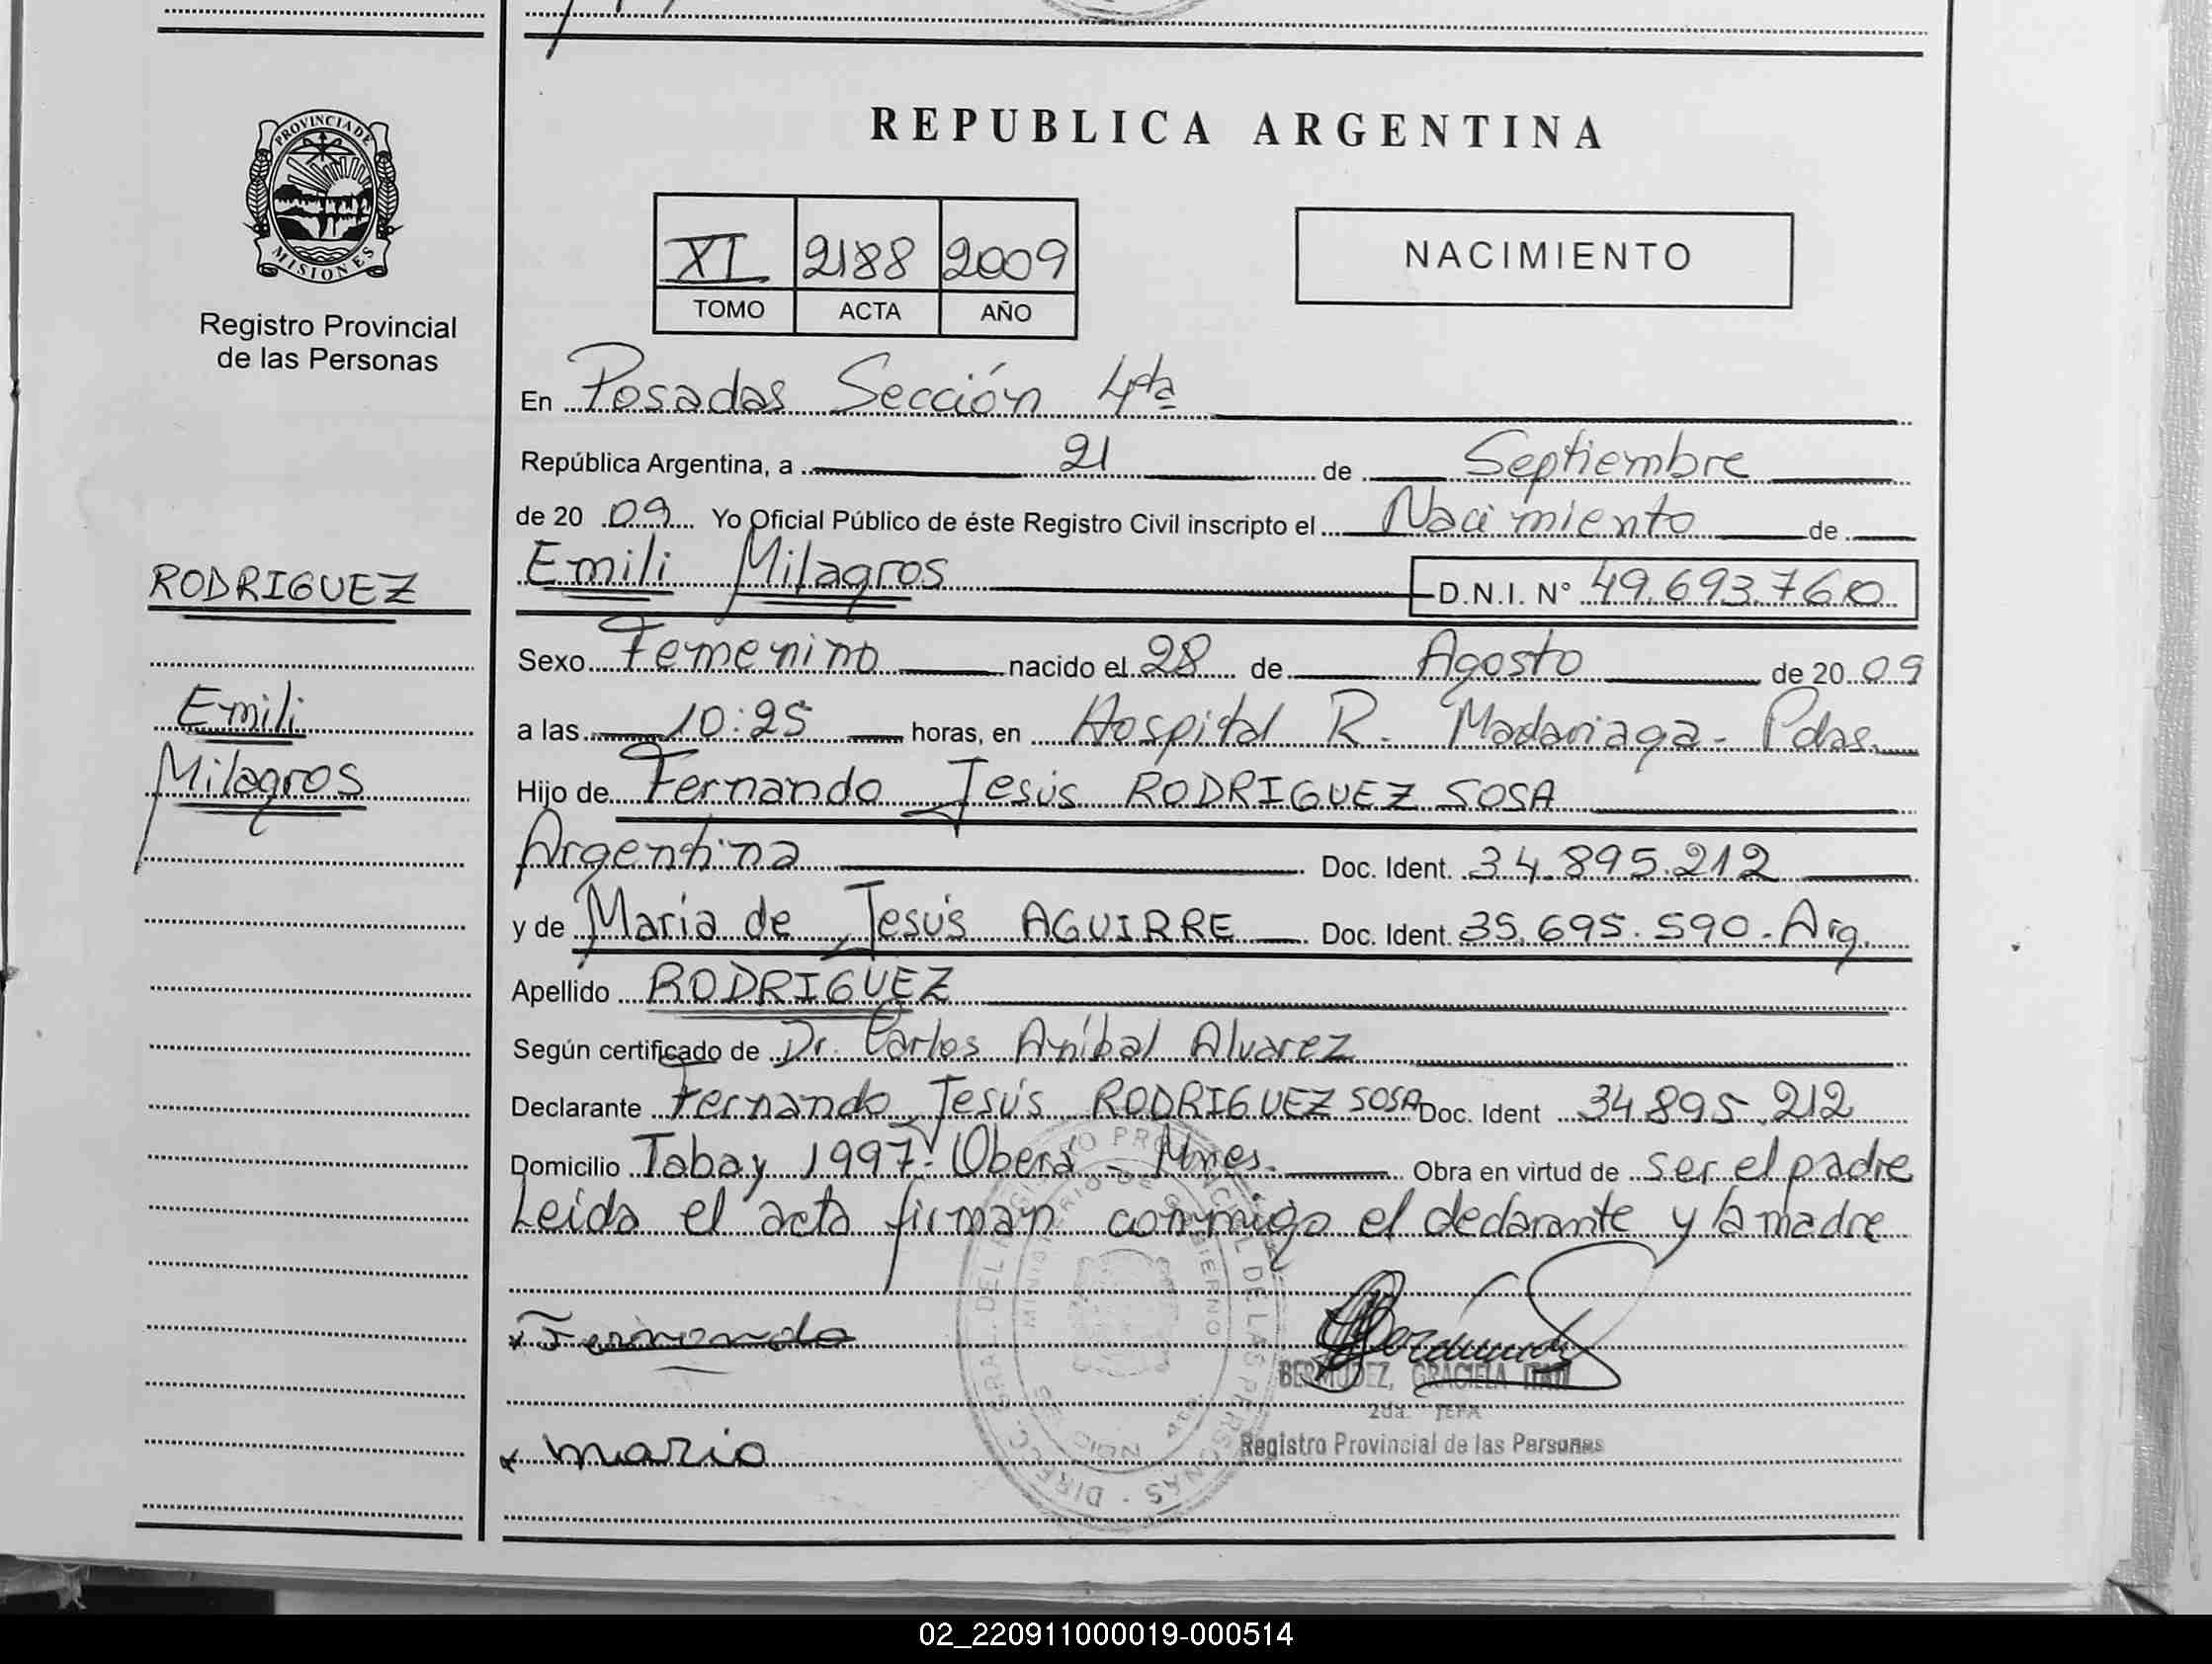 PROVINCIA DE
MISIONES
Registro Provincial
de las Personas
RODRIGUEZ
Emili
Milagros
REPUBLICA ARGENTINA
XI 2188 2009
TOMO ACTA AÑO
NACIMIENTO
En Posadas Sección 4ta
República Argentina, a 21 de Septiembre
de 20 09 Yo Oficial Público de éste Registro Civil inscripto el Nacimiento de
Emili Milagros D.N.I. N° 49.693.760
Sexo Femenino nacido el 28 de Agosto de 20 09
a las 10:25 horas, en Hospital R. Madariaga - Pdas.
Hijo de Fernando Jesús RODRIGUEZ SOSA
Argentina Doc. Ident. 34.895.212
y de María de Jesús AGUIRRE Doc. Ident. 35.695.590. Arg.
Apellido RODRIGUEZ
Según certificado de Dr. Carlos Aníbal Alvarez
Declarante Fernando Jesús RODRIGUEZ SOSA Doc. Ident 34.895.212
Domicilio Tabay 1997. Oberá - Mnes. Obra en virtud de ser el padre
Leida el acta firman conmigo el declarante y la madre
x Fernando
BERMUDEZ, GRACIELA ITATI
2da. JEFA
Registro Provincial de las Personas
x maria
DIRECC. GRAL. DEL REGISTRO PROVINCIAL DE LAS PERSONAS
MINISTERIO DE GOBIERNO
02_220911000019-000514